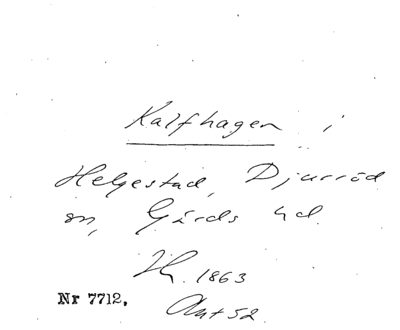 Kalfhagen i
Helgestad, Djurröd
sn, Gärds hd.
1863
Nr 7712.
Ant 52